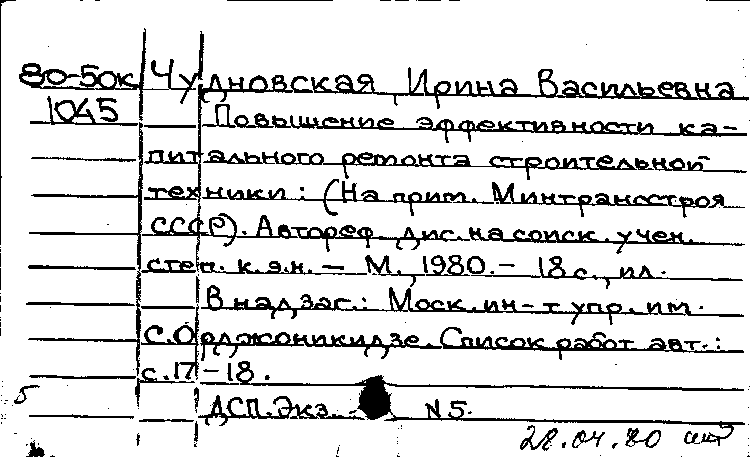 80-50к Чудновская, Ирина Васильевна
1045 Повышение эффективности ка-
питального ремонта строительной
техники: (На прим. Минтрансстроя
СССР). Автореф. дис. на соиск. учен.
степ. к.э.н. – М., 1980. – 18 с., ил.
В надзаг.: Моск. ин-т упр. им.
С. Орджоникидзе. Список работ авт.:
с. 17-18.
5
ДСП. Экз. N 5.
28.04.80